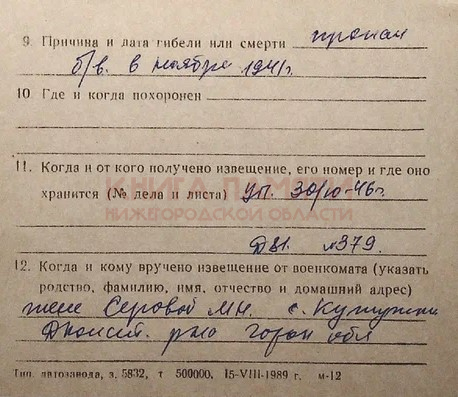 9. Причина и дата гибели или смерти пропал
б/в. в ноябре 1941г.
10 Где и когда похоронен
11. Когда и от кого получено извещение, его номер и где оно
хранится (№ дела и листа) уп. 30/10-46г.
КНИГА ПАМЯТИ
НИЖЕГОРОДСКОЙ ОБЛАСТИ
Д81. л379.
12. Когда и кому вручено извещение от военкомата (указать
родство, фамилию, имя, отчество и домашний адрес)
жене Серовой М.Н. с.
обл
Тип. автозавода, з. 5832, т 500000, 15-VIII-1989 г. м-12